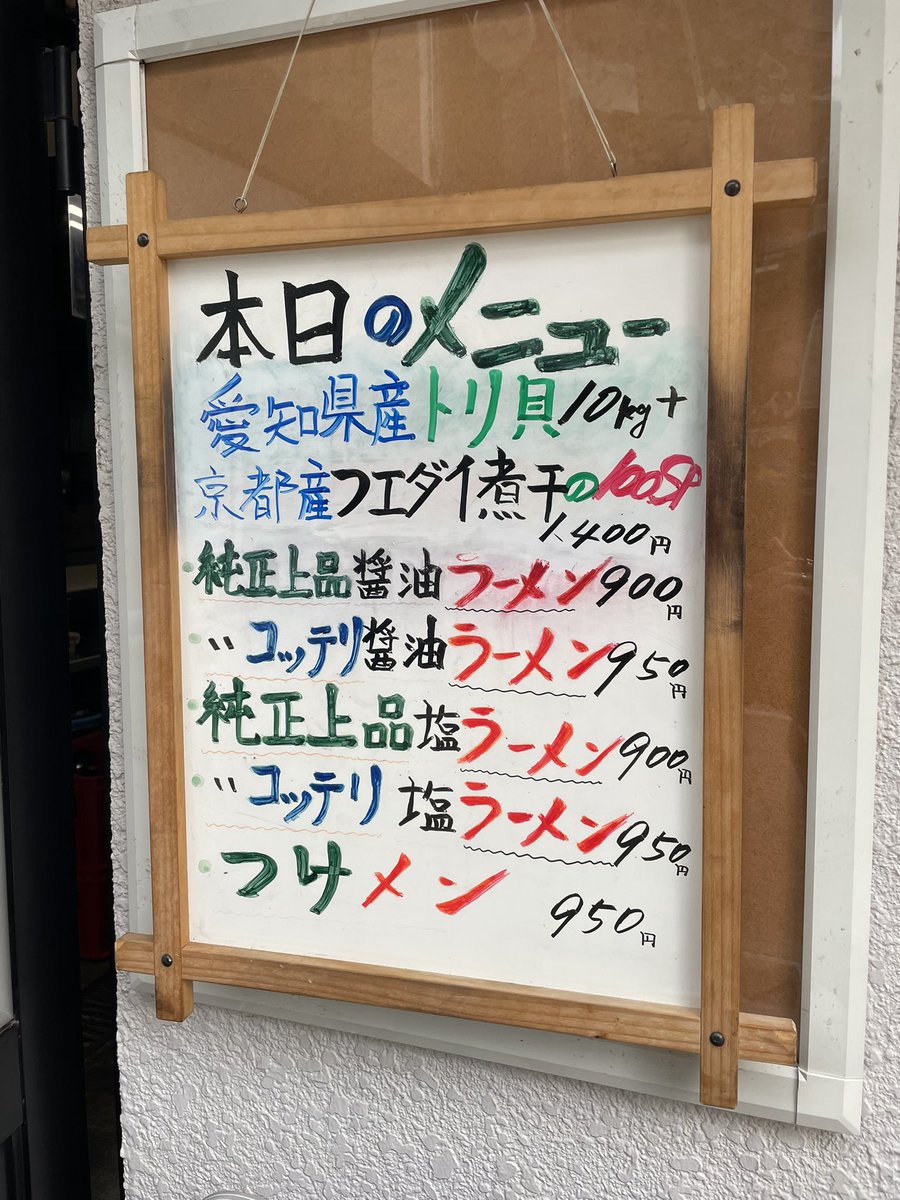 本日のメニュー
愛知県産トリ貝10kg+
京都産フエダイ煮干の100SP
1.400円
・純正上品醤油ラーメン900円
・〃コッテリ醤油ラーメン950円
・純正上品塩ラーメン900円
・〃コッテリ塩ラーメン950円
・つけメン 950円